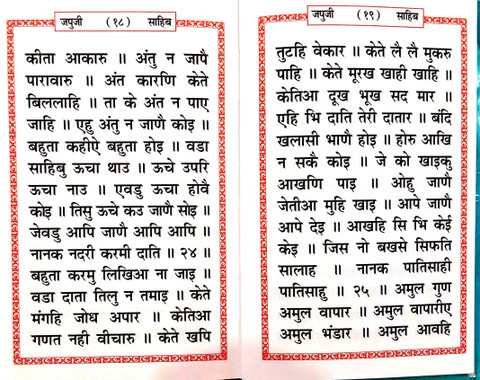 जपुजी (१८) साहिब
कीता आकारु ॥ अंतु न जापै
पारावारु ॥ अंत कारणि केते
बिललाहि ॥ ता के अंत न पाए
जाहि ॥ एहु अंतु न जाणै कोइ ॥
बहुता कहीऐ बहुता होइ ॥ वडा
साहिबु ऊचा थाउ ॥ ऊचे उपरि
ऊचा नाउ ॥ एवडु ऊचा होवै
कोइ ॥ तिसु ऊचे कउ जाणै सोइ ॥
जेवडु आपि जाणै आपि आपि ॥
नानक नदरी करमी दाति ॥ २४ ॥
बहुता करमु लिखिआ ना जाइ ॥
वडा दाता तिलु न तमाइ ॥ केते
मंगहि जोध अपार ॥ केतिआ
गणत नही वीचारु ॥ केते खपि
जपुजी (१९) साहिब
तुटहि वेकार ॥ केते लै लै मुकरु
पाहि ॥ केते मूरख खाही खाहि ॥
केतिआ दूख भूख सद मार ॥
एहि भि दाति तेरी दातार ॥ बंदि
खलासी भाणै होइ ॥ होरु आखि
न सकै कोइ ॥ जे को खाइकु
आखणि पाइ ॥ ओहु जाणै
जेतीआ मुहि खाइ ॥ आपे जाणै
आपे देइ ॥ आखहि सि भि केई
केइ ॥ जिस नो बखसे सिफति
सालाह ॥ नानक पातिसाही
पातिसाहु ॥ २५ ॥ अमुल गुण
अमुल वापार ॥ अमुल वापारीए
अमुल भंडार ॥ अमुल आवहि